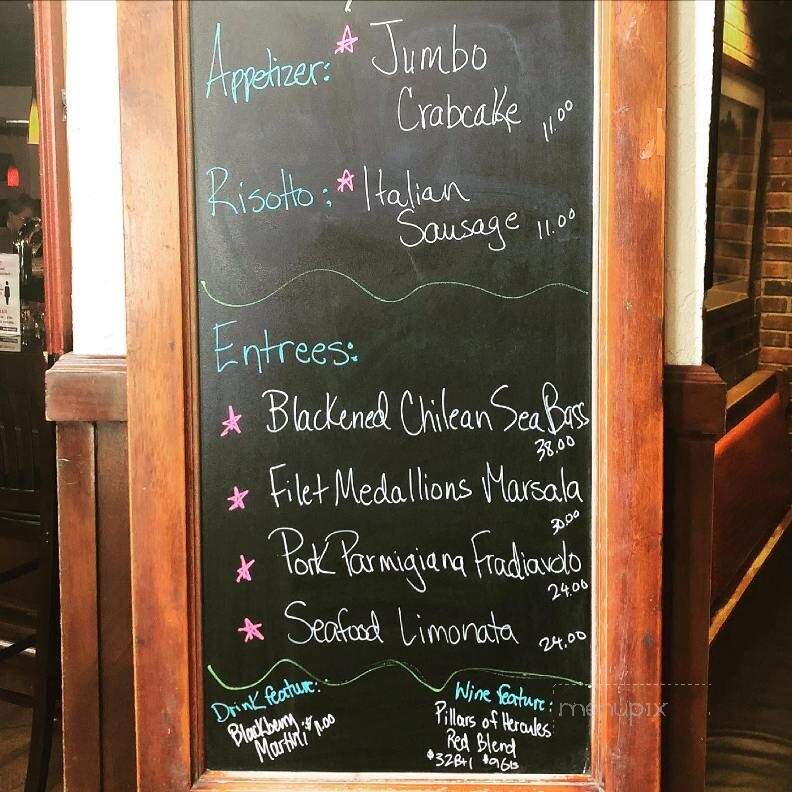 Appetizer: Jumbo
Crabcake 11.00
Risotto: Italian
Sausage 11.00
Entrees:
Blackened Chilean Sea Bass
38.00
Filet Medallions Marsala
30.00
Pork Parmigiana Fradiavolo
24.00
Seafood Limonata 24.00
Drink feature:
Blackberry
Martini
Wine feature:
Pillars of Hercules
Red Blend
$32Btl $9Gls
menupix